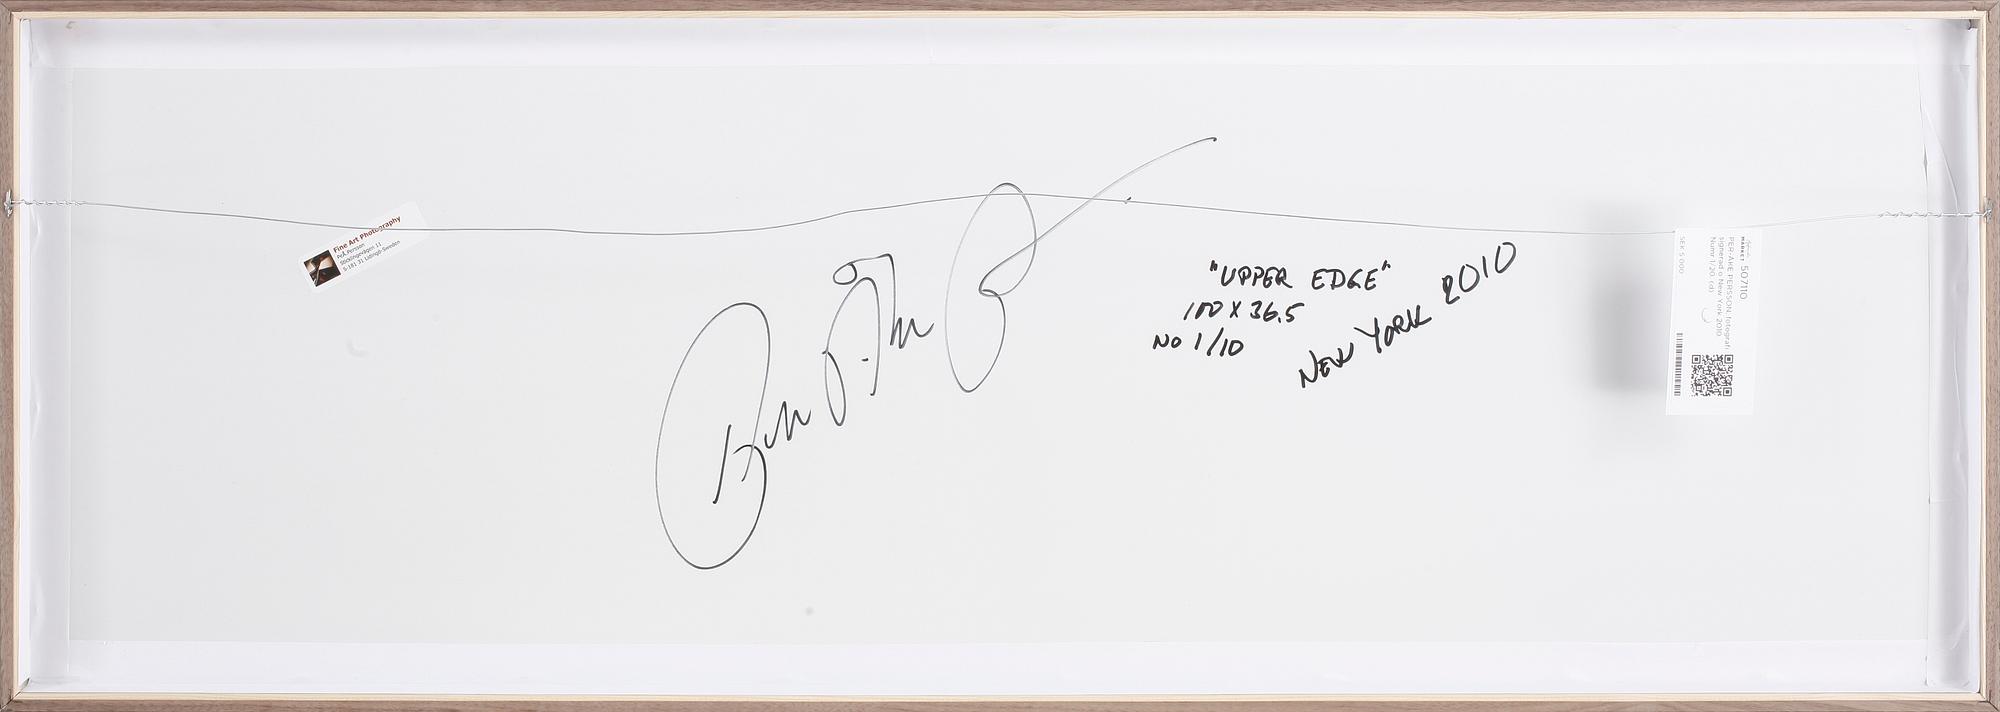 Fine Art Photography
PeÅ Persson
Stockbyvägen 11
S-181 31 Lidingö-Sweden
"UPPER EDGE"
100 X 36.5
NO 1/10
NEW YORK 2010
MARKET 507110
PER-ÅKE PERSSON, fotografi
signerad o New York 2010
Numr 1/20. (d)
SEK 5 000